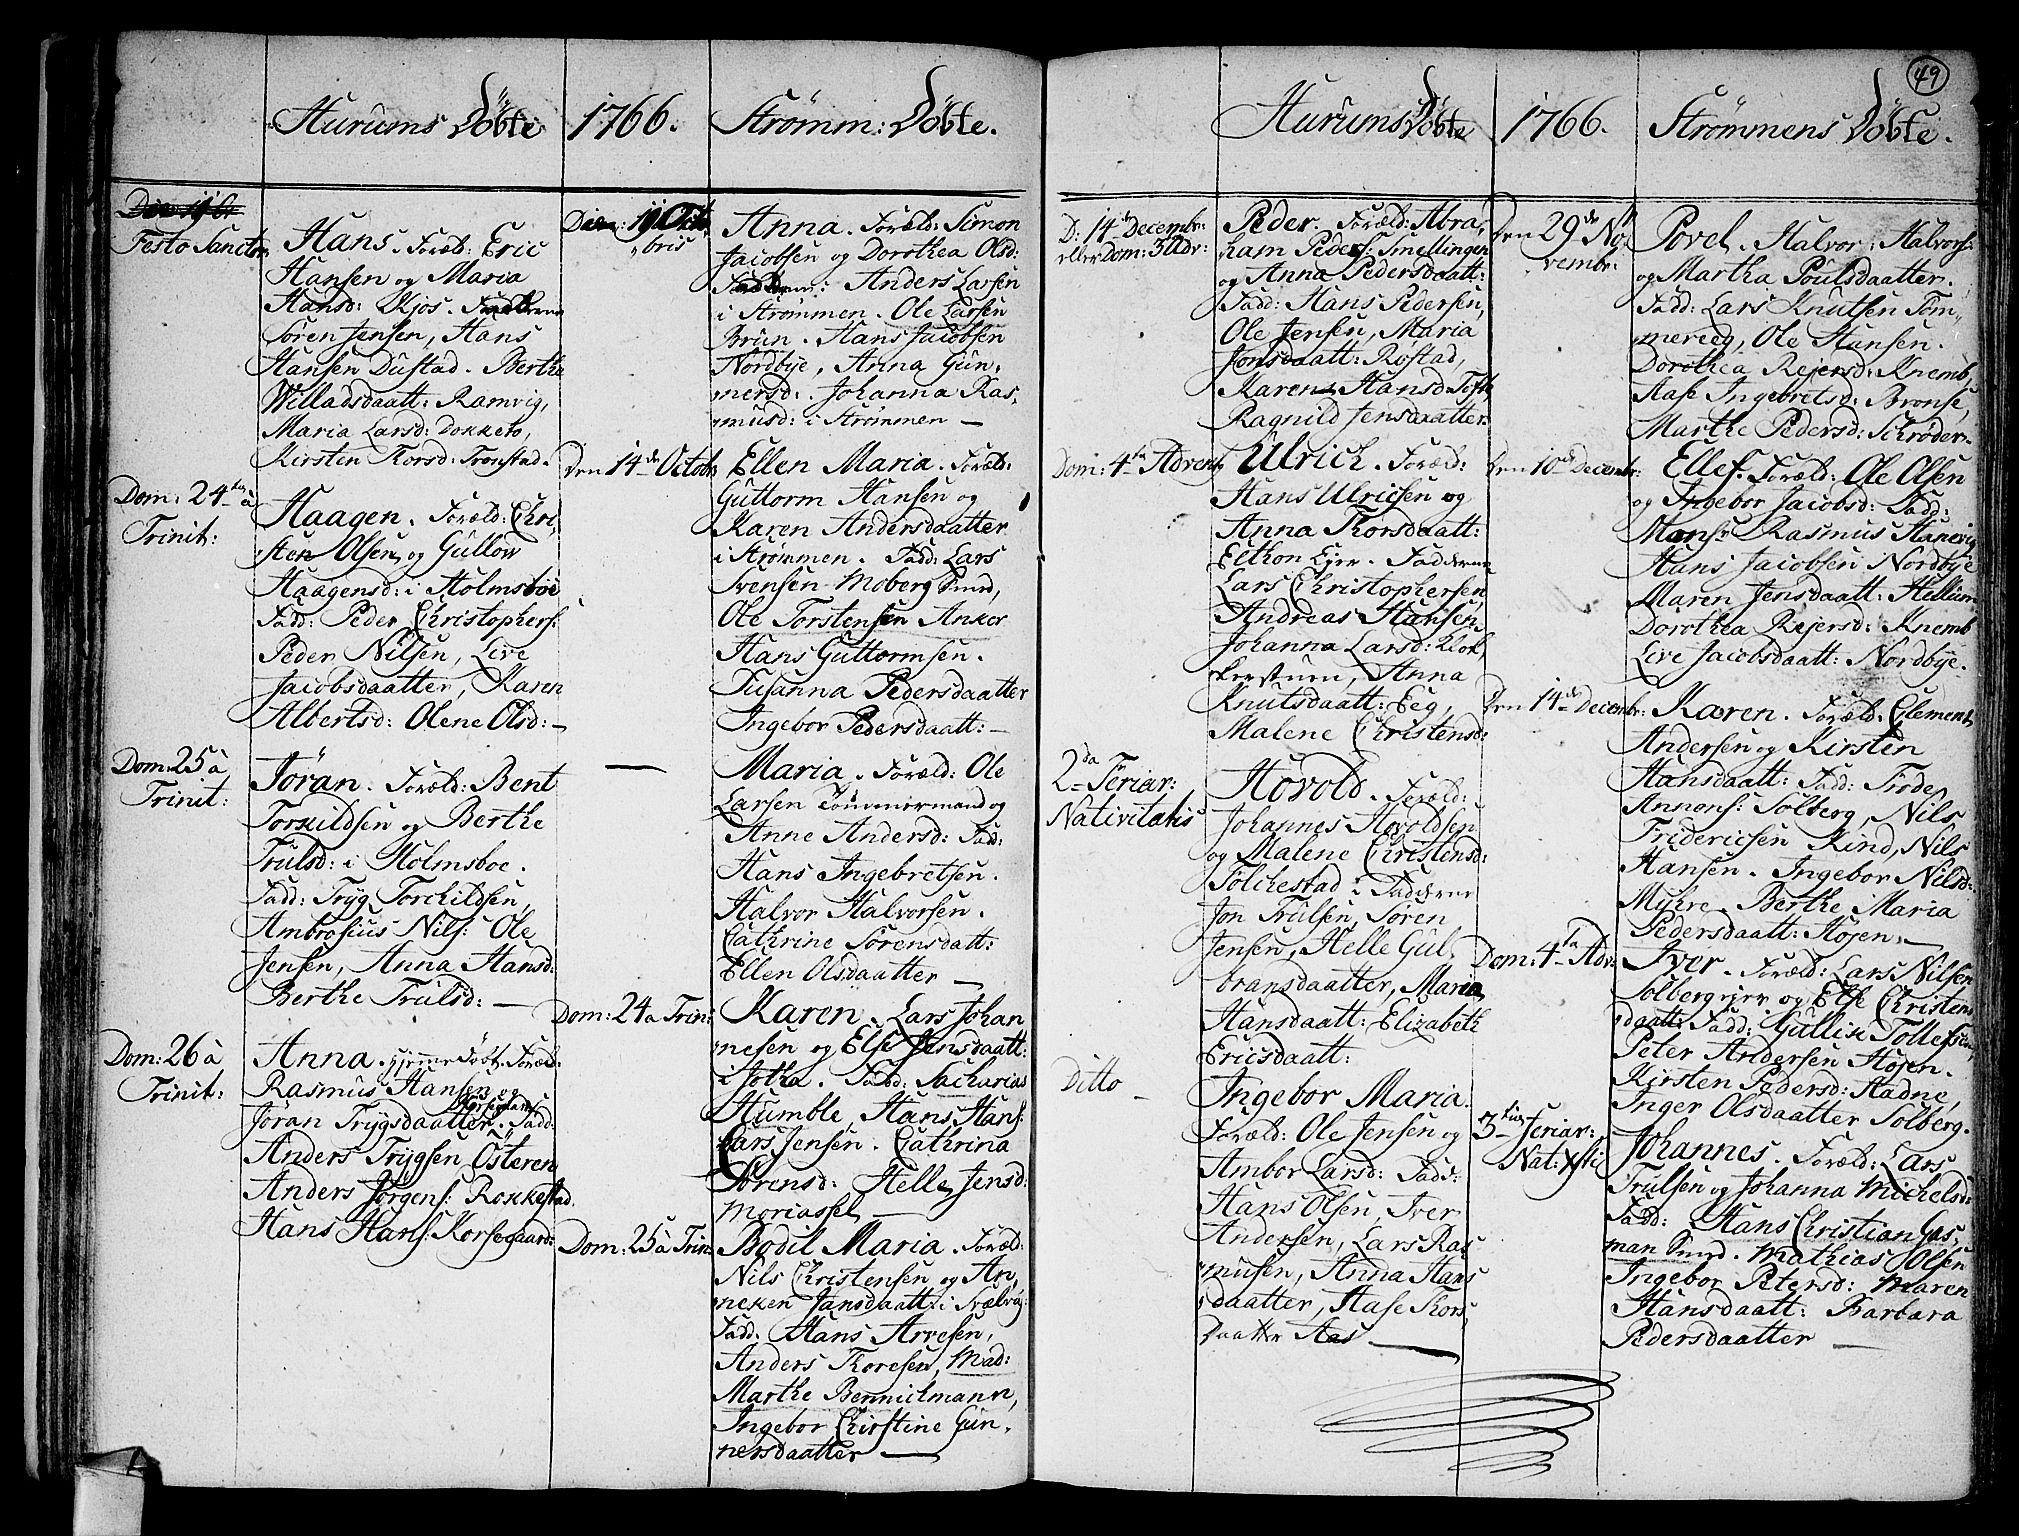 Hurums Döbte
1766.
Strömm: Döbte.
Festo Sanctor:
Hans. Foræld: Eric
Hansen og Maria
Hansd: Kjos. Fadderne
Sören Jensen, Hans
Hansen Dustad. Berthe
Willadsdaatt: Ramvig,
Maria Larsd: Dokketo,
Kirsten Thorsd: Tronstad.
Dom: 24de à
Trinit:
Haagen. Foræld: Chri,
sten Olsen og Gullow
Haagensd: i Holmsboe
Fadd: Peder Christophers:
Peder Nilsen, Live
Jacobsdaatter, Karen
Albertsd: Olene Olsd:
Dom: 25 à
Trinit:
Jöran. Foræld: Bent
Torkildsen og Berthe
Trulsd: i Holmsboe.
Fadd: Tryg Torchildsen,
Ambrosius Nils: Ole
Jensen, Anna Hansd:
Berthe Trulsd:
Dom: 26 à
Trinit:
Anna. hjemme Döbt. Foræld:
Rasmus Hansen og
Korsegaard
Jöran Trygsdaatter. Fadd:
Anders Trygsen Österen
Anders Jörgens: Rokkestad
Hans Hans: Korsegaard:
Octo,
bris
Anna. Foræld: Simon
Jacobsen og Dorothea Olsd:
Fadderne: Anders Larsen
i Strömmen. Ole Larsen
Brun. Hans Jacobsen
Nordbye, Anna Gun,
mersd: Johanna Ras,
musd: i Strömmen
Den 14de Octobr:
Ellen Maria. Foræld:
Guttorm Hansen og
Karen Andersdaatter
i Strömmen. Fadd: Lars
Svensen Moberg Smed,
Ole Torstensen Anker
Hans Guttormsen.
Susanna Pedersdaatter
Ingebor Pedersdaatt:
Maria. Foræld: Ole
Larsen Tömmermand og
Anne Andersd: Fadd:
Hans Ingebretsen.
Halvor Halvorsen.
Cathrine Sörensdatt:
Ellen Olsdaatter
Dom: 24 a Trin:
Karen. Lars Johan
nesen og Else Jensdaatt:
i Jotha. Fadd: Sacharias
Humble, Hans Hans:
Lars Jensen. Cathrina
Sörensd: Helle Jensd:
Moriassel
Dom: 25 à Trin:
Bodil Maria. Foræld:
Nils Christensen og An,
neken Jansdaatt: i Svælvig:
Fadd. Hans Arvesen,
Anders Thoresen, Mad:
Marthe Bennichmann,
Ingebor Christine Gun,
nersdaatter
49
Hurums Döbte
1766.
Strömmens Döbte.
D: 14de Decembr:
eller Dom: 3 Adv:
Peder. Foræld: Abra,
ham Peders: Smellingen
og Anna Pedersdaatt:
Fadd: Hans Pedersen,
Ole Jensen, Maria
Jonsdaatt: Rostad,
Karen Hansd: Tofte
Ragnild Jensdaatter
Dom: 4ta Advent
Ulrich. Foræld:
Hans Ulricsen og
Anna Thorsdaatt:
Elthon Ejer. Fadderne
Lars Christophersen,
Andreas Hansen,
Johanna Larsd: Klok,
kerstuen, Anna
Knutsdaatt: Eeg,
Malene Christensd:
2da Feriar:
Nativitatis
Hovold. Foræld:
Johannes Hovoldsen
og Malene Christensd:
Tolchestad: Fadderne
Jon Trulsen, Sören
Jensen, Helle Gul,
bransdaatter, Maria
Hansdaatt: Elizabeth
Ericsdaatt:
Ditto
Ingebor Maria.
Foræld: Ole Jensen og
Ambor Larsd: Fadd:
Hans Olsen, Iver
Andersen, Lars Ras
musen, Anna Hans
daatter, Aase Thors
daatter Aas
Den 29de No,
vembr:
Povel. Halvor: Halvors:
og Martha Poulsdaatter.
Fadd: Lars Knutsen Töm,
mereeg, Ole Hansen.
Dorothea Rejersd: Knemb,
Aase Ingebretsd: Bronse,
Marthe Pedersd: Schröder
Den 10de Decembr:
Ellef. Foræld: Ole Olsen
og Ingebor Jacobsd: Fadd:
Monsr Rasmus Hanevig
Hans Jacobsen Nordbye
Maren Jensdaatt: Hellum
Dorothea Rejersd: Knemb
Live Jacobsdaatt: Nordbye.
Den 14de Decembr:
Karen. Foræld: Clement
Andersen og Kirsten
Hansdaatt: Fadd: Frode
Annons: Solberg, Nils
Fridericsen Kind, Nils
Hansen. Ingebor Nilsd:
Myhre. Berthe Maria
Pedersdaatt: Höjen
Dom: 4ta Adv:
Iver. Foræld: Lars Nilsen
Solberg ejer og Else Christens
daatt: Fadd: Gullik Tollefsen,
Peter Andersen Höjen.
Kirsten Pedersd: Hadne,
Inger Olsdaatter Solberg.
3tia Feriar:
Nat: Xsti
Johannes. Foræld: Lars
Trulsen og Johanna Michelsd:
Fadd: Hans Christian Gas,
man Smed. Mathias Olsen
Ingebor Petersd: Maren
Hansdaatt: Barbara
Pedersdaatter